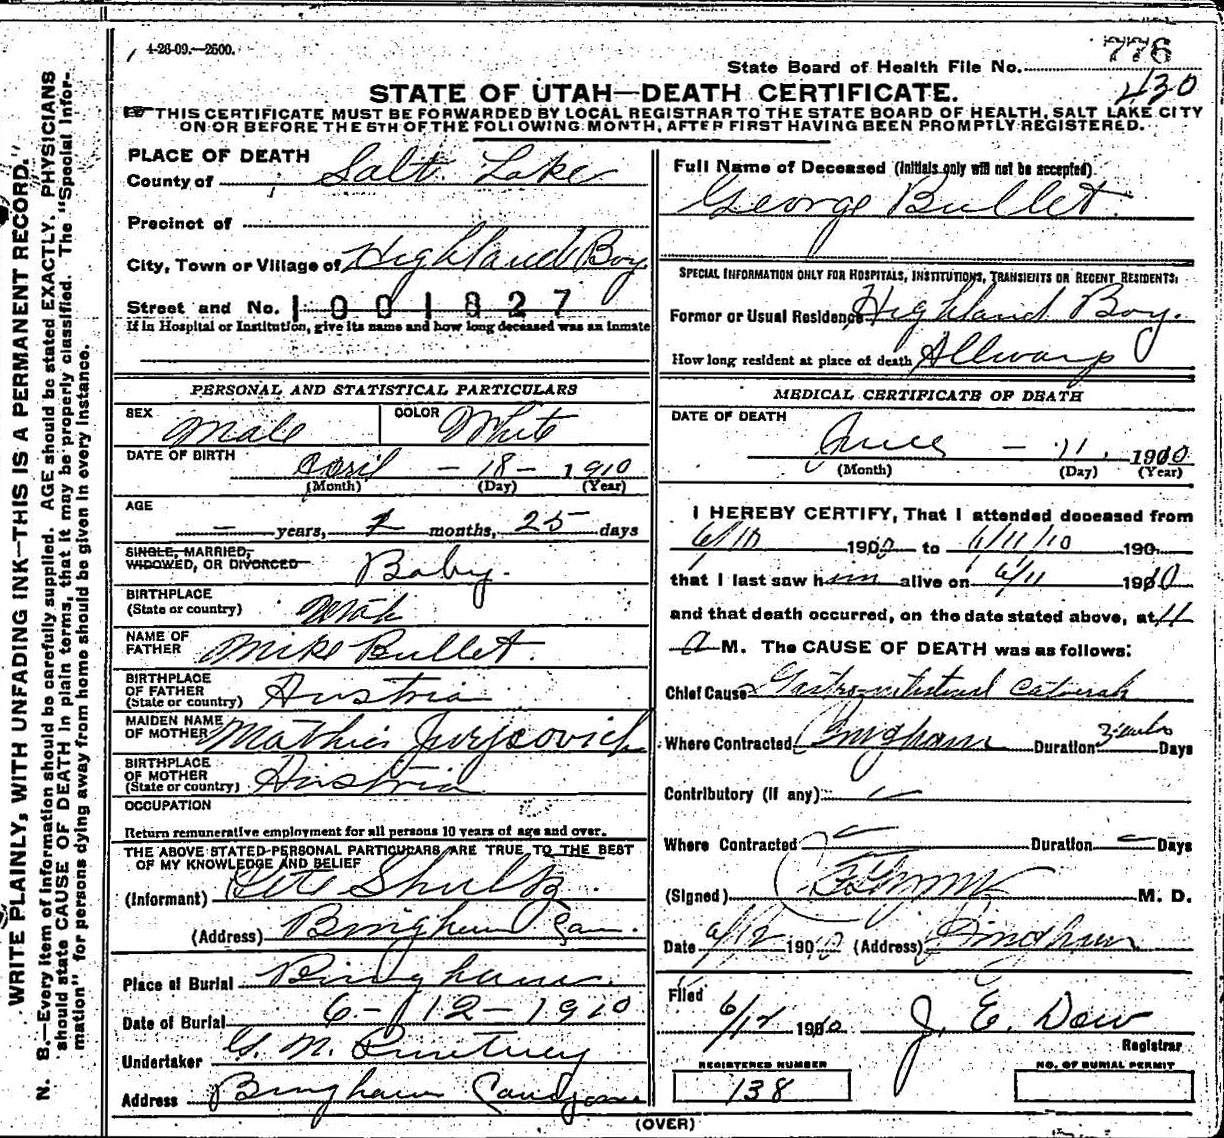 4-26-09.—2500.
776
State Board of Health File No.
430
STATE OF UTAH—DEATH CERTIFICATE.
THIS CERTIFICATE MUST BE FORWARDED BY LOCAL REGISTRAR TO THE STATE BOARD OF HEALTH, SALT LAKE CITY
ON OR BEFORE THE 5TH OF THE FOLLOWING MONTH, AFTER FIRST HAVING BEEN PROMPTLY REGISTERED.
WRITE PLAINLY, WITH UNFADING INK—THIS IS A PERMANENT RECORD."
N. B.—Every item of information should be carefully supplied. AGE should be stated EXACTLY. PHYSICIANS
should state CAUSE OF DEATH in plain terms, that it may be properly classified. The "Special Infor-
mation" for persons dying away from home should be given in every instance.
PLACE OF DEATH
County of Salt Lake
Precinct of
City, Town or Village of Highland Boy
Street and No. 1001827
If in Hospital or Institution, give its name and how long deceased was an inmate
PERSONAL AND STATISTICAL PARTICULARS
SEX Male COLOR White
DATE OF BIRTH
April — 18 — 1910
(Month) (Day) (Year)
AGE
— years, 1 months, 25 days
SINGLE, MARRIED,
WIDOWED, OR DIVORCED Baby.
BIRTHPLACE
(State or country) Utah
NAME OF
FATHER Mike Bullet.
BIRTHPLACE
OF FATHER
(State or country) Austria
MAIDEN NAME
OF MOTHER
BIRTHPLACE
OF MOTHER
(State or country) Austria
OCCUPATION
Return remunerative employment for all persons 10 years of age and over.
THE ABOVE STATED PERSONAL PARTICULARS ARE TRUE TO THE BEST
OF MY KNOWLEDGE AND BELIEF
(Informant) Pete Shultz.
(Address) Bingham Can.
Place of Burial Bingham
Date of Burial 6-12-1910
Undertaker G. M.
Address Bingham Canyon
Full Name of Deceased (Initials only will not be accepted).
George Bullet.
SPECIAL INFORMATION ONLY FOR HOSPITALS, INSTITUTIONS, TRANSIENTS OR RECENT RESIDENTS:
Former or Usual Residence Highland Boy.
How long resident at place of death Allways
MEDICAL CERTIFICATE OF DEATH
DATE OF DEATH
June — 11, 1910
(Month) (Day) (Year)
I HEREBY CERTIFY, That I attended deceased from
6/10 190 to 6/11/10 190
that I last saw him alive on 6/11 1910
and that death occurred, on the date stated above, at 11
a M. The CAUSE OF DEATH was as follows:
Chief Cause Gastro-intestinal catarrah
Where Contracted Bingham Duration Days
Contributory (if any): —
Where Contracted — Duration — Days
(Signed) M. D.
Date 6/12 1910 (Address) Bingham
Filed 6/12 1910 J. E. Dow
Registrar
REGISTERED NUMBER
138
NO. OF BURIAL PERMIT
(OVER)